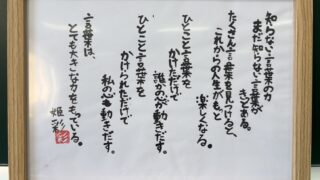 知らない言葉の力
まだ知らない言葉が
きっとある。
たくさん言葉を見つけると、
これからの人生がもっと
楽しくなる。
ひとこと言葉を
かけただけで
誰かの心が動きだす。
ひとこと言葉を
かけられただけで
私の心も動きだす。
言葉は、
とても大きな力をもっている。
姫彩